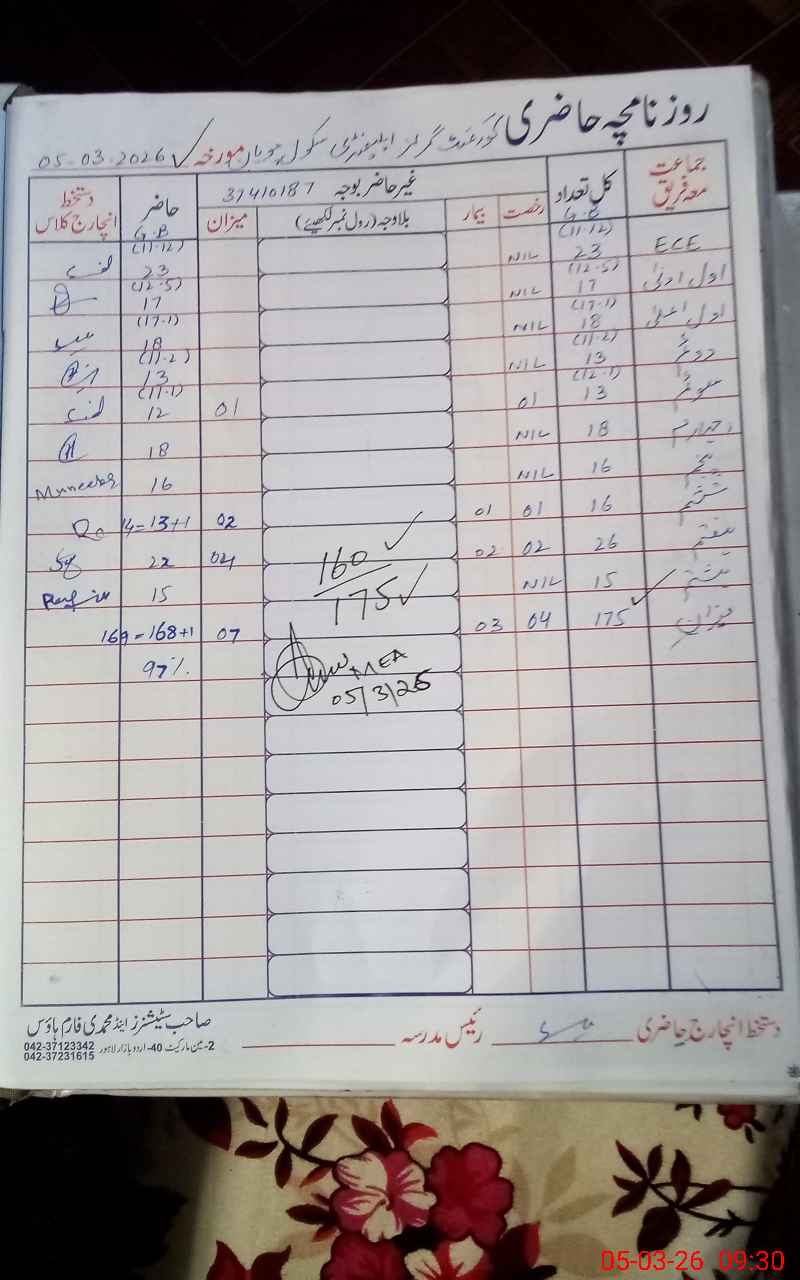 روزنامچہ حاضری گورنمنٹ گرلز ایلیمنٹری سکول مورخہ 05-03-2026 ✓
جماعت معہ فریق کل تعداد غیر حاضر بوجہ 37410187 حاضر دستخط انچارج کلاس
رخصت بیمار بلاوجہ (رول نمبر لکھیئے) میزان
G.B G.B
(11-12) (11-12)
ECE 23 NIL 23
(12-5) (12-5)
اول ادنیٰ 17 NIL 17
(17-1) (17-1)
اول اعلیٰ 18 NIL 18
(11-2) (11-2)
دوئم 13 NIL 13
(12-1) (11-1)
سوئم 13 01 01 12
چہارم 18 NIL 18
پنجم 16 NIL 16 Muneeba
ششم 16 01 01 02 14=13+1
ہفتم 26 02 02 04 22
ہشتم 15 NIL 15
میزان 175 ✓ 04 03 07 169=168+1
97%
160 ✓
175 ✓
MEA
05/3/26
دستخط انچارج حاضری رئیس مدرسہ
صاحب سٹیشنرز اینڈ محمدی فارم ہاؤس
2-مین مارکیٹ 40-اردو بازار لاہور
042-37123342
042-37231615
05-03-26 09:30